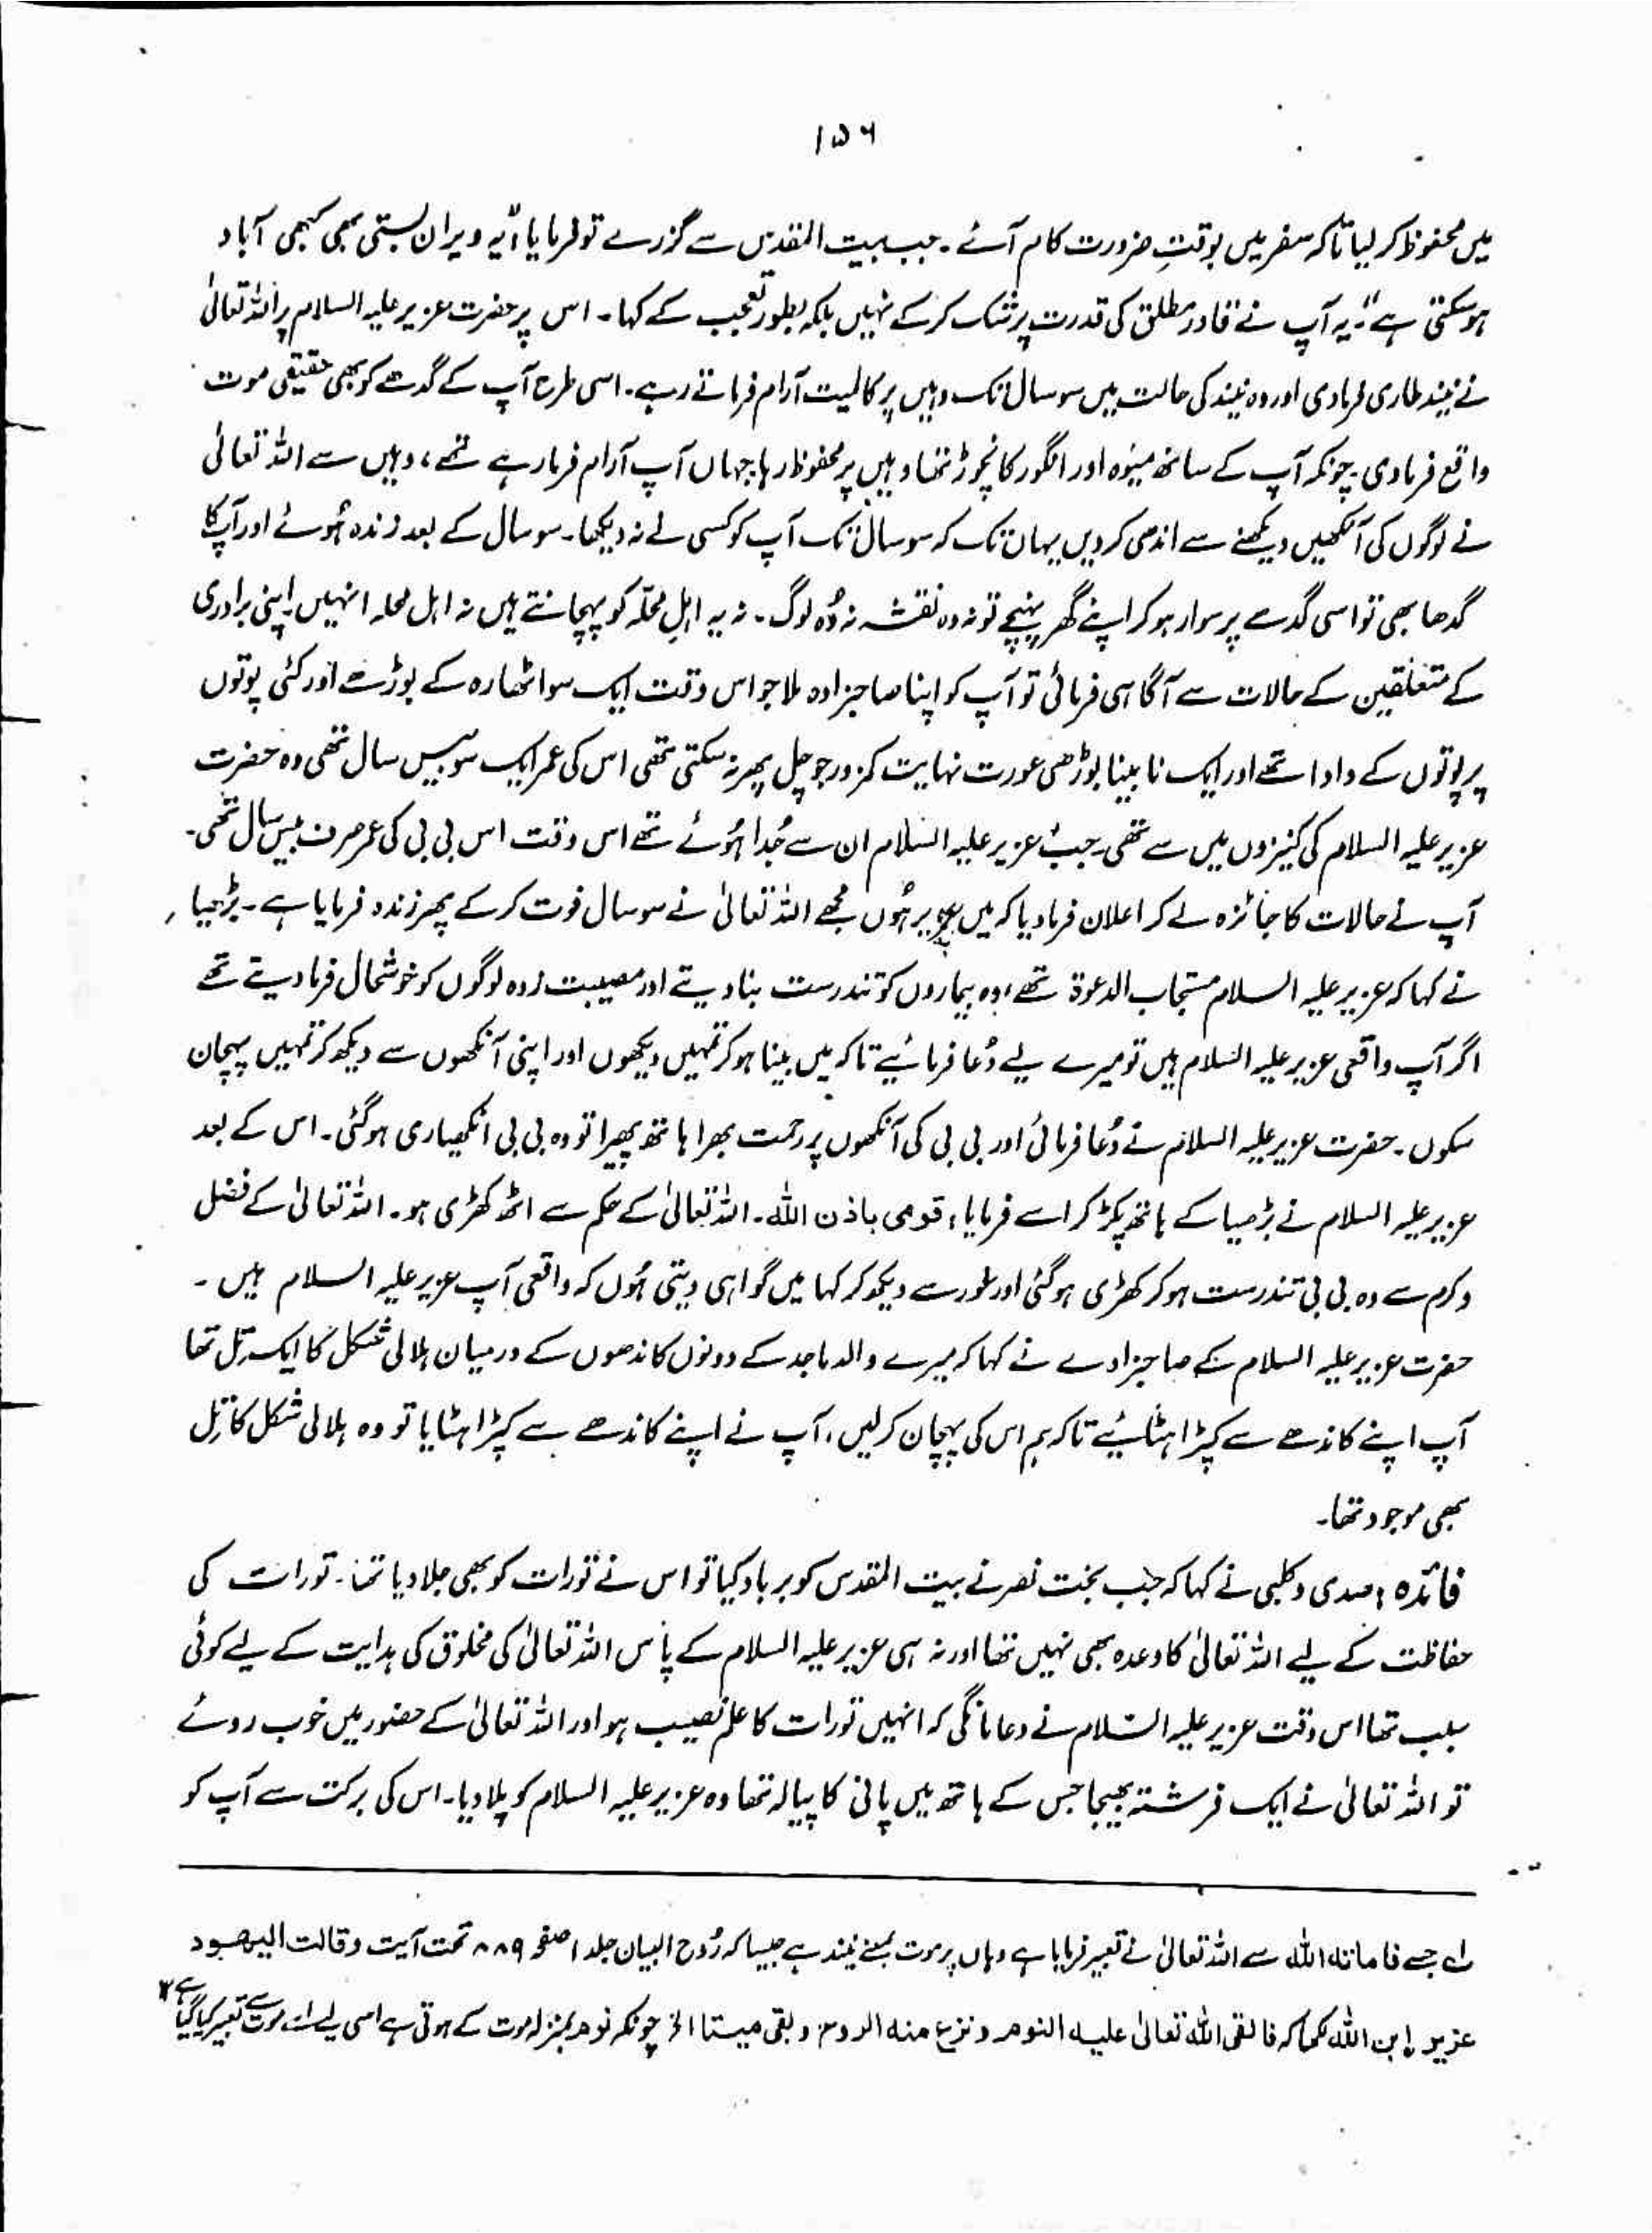 ۱۵۶
میں محفوظ کر لیا تاکہ سفر میں بوقتِ ضرورت کام آئے۔ جب بیت المقدس سے گزرے تو فرمایا "یہ ویران بستی بھی کبھی آباد
ہو سکتی ہے"۔ یہ آپ نے قادرِ مطلق کی قدرت پر شک کر کے نہیں بلکہ بطور تعجب کے کہا۔ اس پر حضرت عزیر علیہ السلام پر اللہ تعالیٰ
نے نیند طاری فرما دی اور وہ نیند کی حالت میں سو سال تک وہیں پر آرام فرماتے رہے۔ اسی طرح آپ کے گدھے کو بھی حقیقی موت
واقع فرما دی۔ چونکہ آپ کے ساتھ میوہ اور انگور کا نچوڑ تھا وہیں پر محفوظ رہا جہاں آپ آرام فرما رہے تھے، وہیں سے اللہ تعالیٰ
نے لوگوں کی آنکھیں دیکھنے سے اندھی کر دیں یہاں تک کہ سو سال تک آپ کو کسی نے نہ دیکھا۔ سو سال کے بعد زندہ ہُوئے اور آپ کا
گدھا بھی تو اسی گدھے پر سوار ہو کر اپنے گھر پہنچے تو نہ وہ نقشہ نہ وُہ لوگ۔ نہ یہ اہلِ محلّہ کو پہچانتے ہیں نہ اہل محلہ انہیں۔ اپنی برادری
کے متعلقین کے حالات سے آگاہی فرمائی تو آپ کو اپنا صاحبزادہ ملا جو اس وقت ایک سو اٹھارہ کے بوڑھے اور کئی پوتوں
پرپوتوں کے دادا تھے اور ایک نابینا بوڑھی عورت نہایت کمزور جو چل پھر نہ سکتی تھی اس کی عمر ایک سو بیس سال تھی وہ حضرت
عزیر علیہ السلام کی کنیزوں میں سے تھی۔ جب عزیر علیہ السلام ان سے جُدا ہُوئے تھے اس وقت اس بی بی کی عمر صرف بیس سال تھی۔
آپ نے حالات کا جائزہ لے کر اعلان فرما دیا کہ میں عزیر ہُوں مجھے اللہ تعالیٰ نے سو سال فوت کر کے پھر زندہ فرمایا ہے۔ بڑھیا
نے کہا کہ عزیر علیہ السلام مستجاب الدعوۃ تھے، وہ بیماروں کو تندرست بنا دیتے اور مصیبت زدہ لوگوں کو خوشحال فرما دیتے تھے
اگر آپ واقعی عزیر علیہ السلام ہیں تو میرے لیے دُعا فرمائیے تاکہ میں بینا ہو کر تمہیں دیکھوں اور اپنی آنکھوں سے دیکھ کر تمہیں پہچان
سکوں۔ حضرت عزیر علیہ السلام نے دُعا فرمائی اور بی بی کی آنکھوں پر رحمت بھرا ہاتھ پھیرا تو وہ بی بی انکھیاری ہو گئی۔ اس کے بعد
عزیر علیہ السلام نے بڑھیا کے ہاتھ پکڑ کر اسے فرمایا: قومی باذن اللہ۔ اللہ تعالیٰ کے حکم سے اٹھ کھڑی ہو۔ اللہ تعالیٰ کے فضل
و کرم سے وہ بی بی تندرست ہو کر کھڑی ہو گئی اور غور سے دیکھ کر کہا میں گواہی دیتی ہُوں کہ واقعی آپ عزیر علیہ السلام ہیں۔
حضرت عزیر علیہ السلام کے صاحبزادے نے کہا کہ میرے والد ماجد کے دونوں کاندھوں کے درمیان ہلالی شکل کا ایک تِل تھا
آپ اپنے کاندھے سے کپڑا ہٹائیے تاکہ ہم اس کی پہچان کر لیں، آپ نے اپنے کاندھے سے کپڑا ہٹایا تو وہ ہلالی شکل کا تِل
بھی موجود تھا۔
فائدہ: سدی و کلبی نے کہا کہ جب بخت نصر نے بیت المقدس کو برباد کیا تو اس نے تورات کو بھی جلا دیا تھا۔ تورات کی
حفاظت کے لیے اللہ تعالیٰ کا وعدہ بھی نہیں تھا اور نہ ہی عزیر علیہ السلام کے پاس اللہ تعالیٰ کی مخلوق کی ہدایت کے لیے کوئی
سبب تھا اس وقت عزیر علیہ السلام نے دعا مانگی کہ انہیں تورات کا علم نصیب ہو اور اللہ تعالیٰ کے حضور میں خوب روئے
تو اللہ تعالیٰ نے ایک فرشتہ بھیجا جس کے ہاتھ میں پانی کا پیالہ تھا وہ عزیر علیہ السلام کو پلا دیا۔ اس کی برکت سے آپ کو
لے جسے فاماتہ اللہ سے اللہ تعالیٰ نے تعبیر فرمایا ہے وہاں پر موت بمعنے نیند ہے جیسا کہ رُوح البیان جلد ۱ صفحہ ۸۸۹ تحت آیت وقالت الیہود
عزیر ابن اللہ لکھا کہ فالقی اللہ تعالیٰ علیہ النوم و نزع منہ الروح و بقی میتا الخ چونکہ نوم بمنزلہ موت کے ہوتی ہے اسی لیے اسے موت سے تعبیر کیا گیا ہے